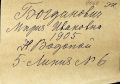 Богданович
Мария Ивановна
1905
Н Водопой
5-Линия № 6